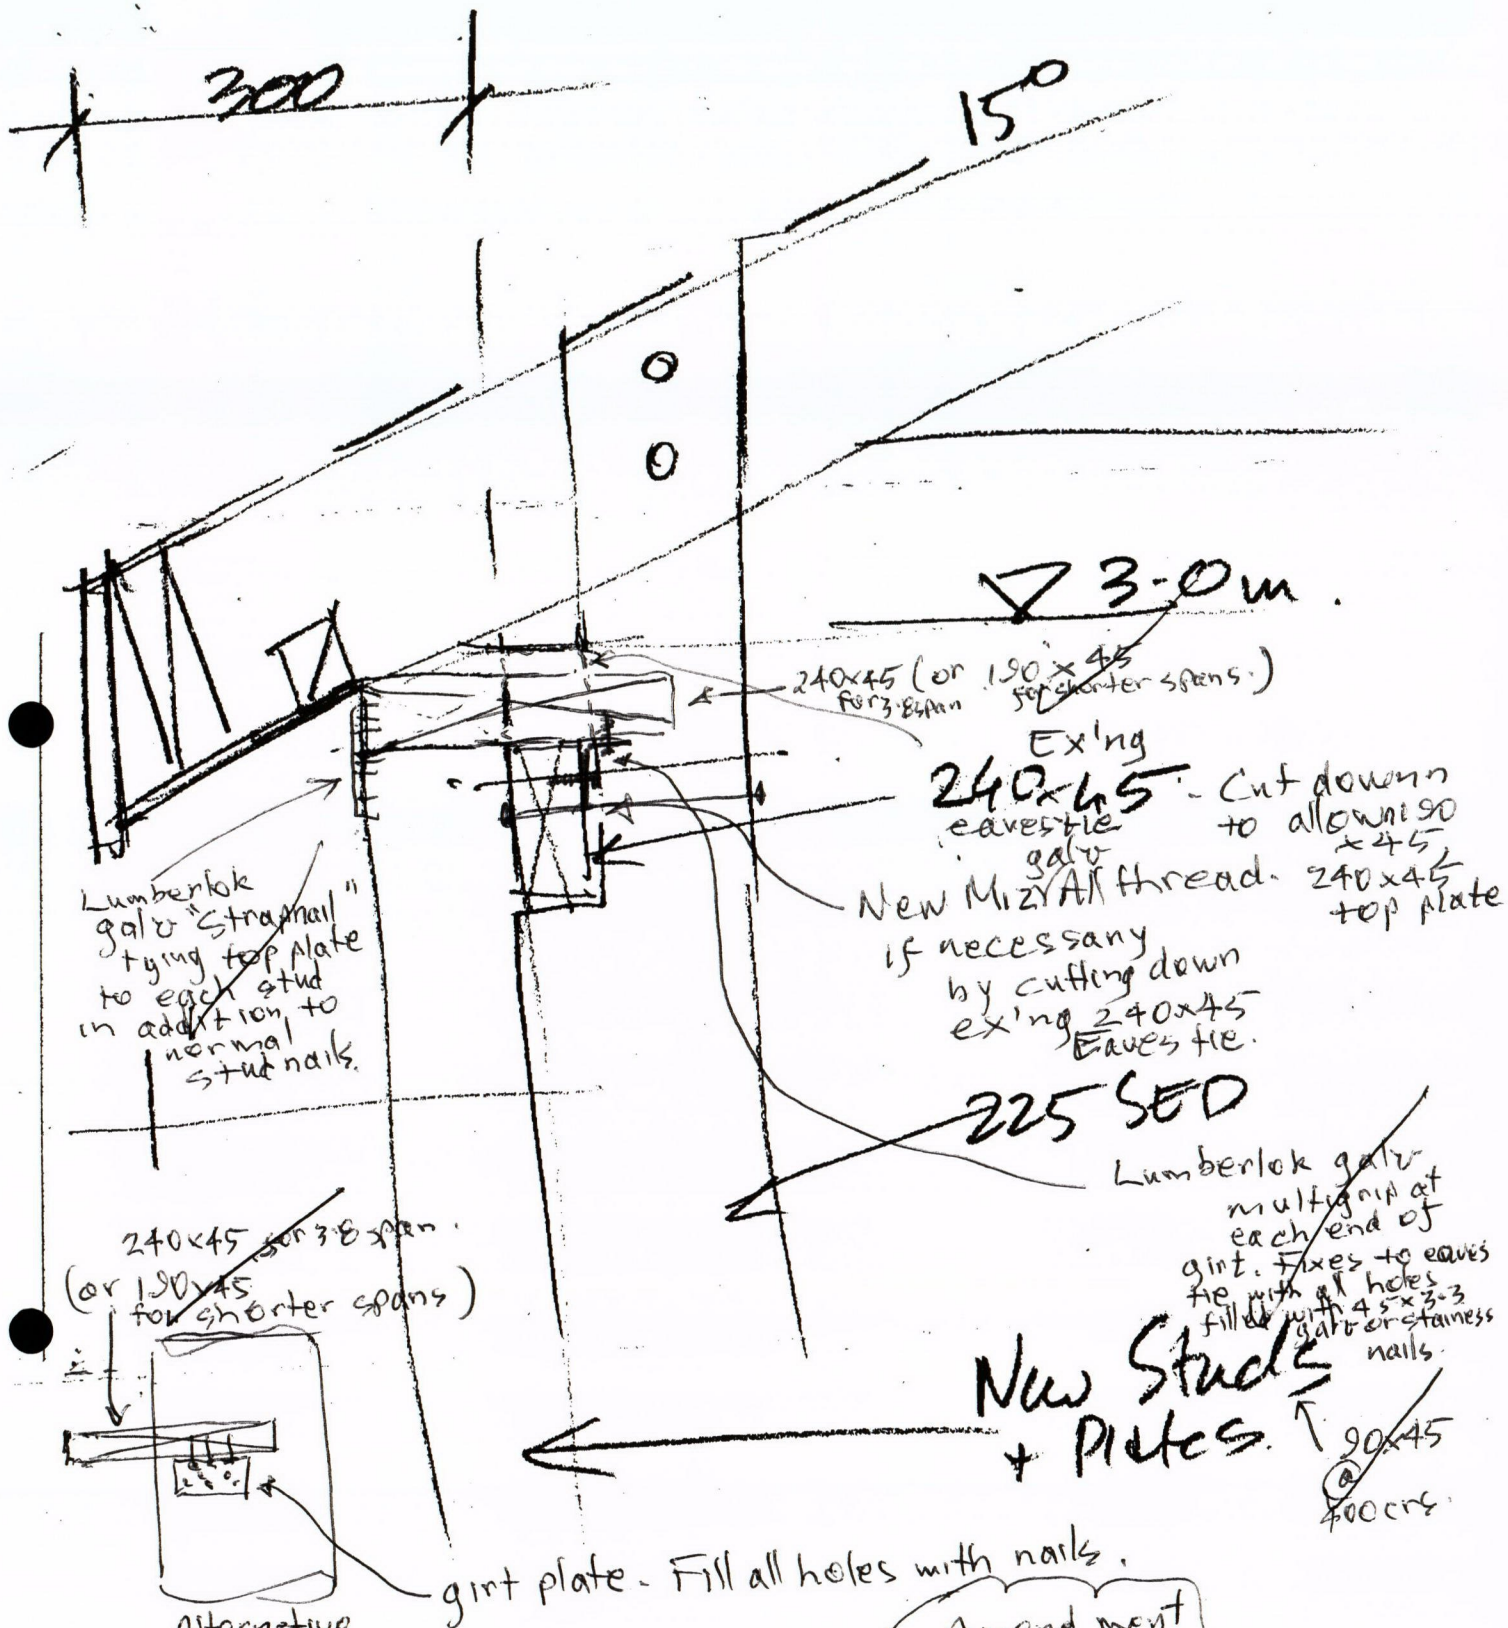 300
15°
3.0m.
240x45 (or 190 x 45
for 3.8 span for shorter spans.)
Ex'ng
240x45 - Cut downn
eavestie to allow 190
x 45,
240x45
top plate
galv
New M12 All thread.
if necessary
by cutting down
ex'ng 240x45
Eaves tie.
Lumberlok
galv "Strapnail"
tying top plate
to each stud
in addition to
normal
stud nails.
225 SED
Lumberlok galv
multigrip at
each end of
girt. Fixes to eaves
tie with all holes
filled with 45x3.3
galv or stainess
nails.
240x45 for 3.8 span.
(or 190x45
for shorter spans)
New Studs
+ Plates.
90x45
@
400crs.
girt plate - Fill all holes with nails.
alternative
Amendment